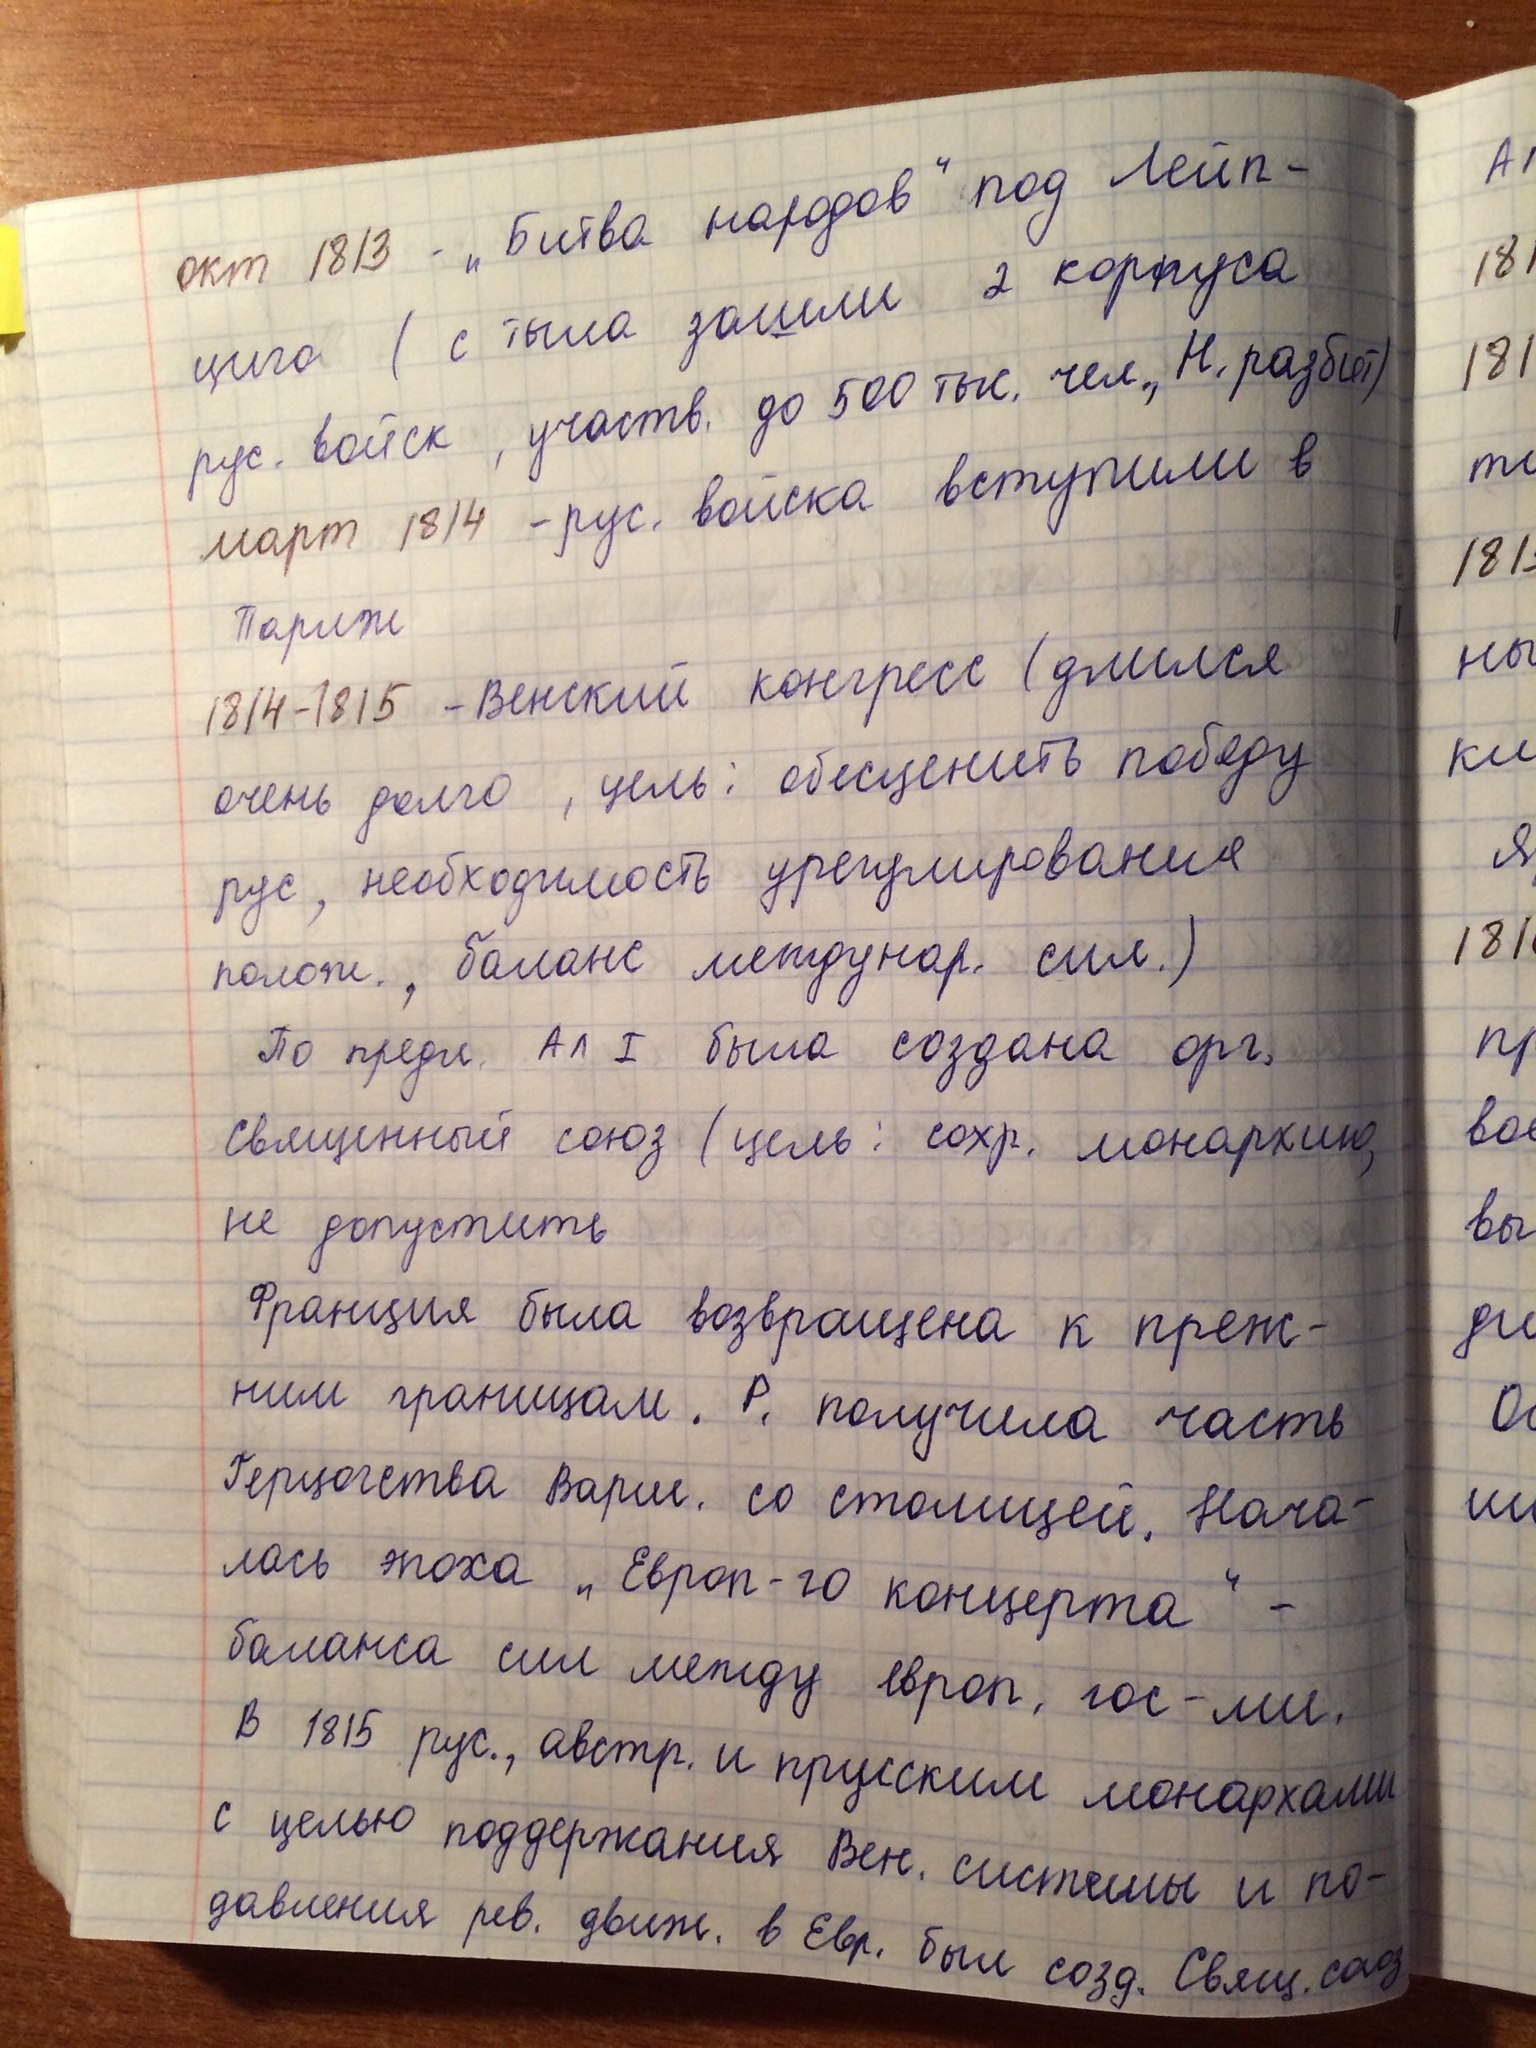 окт 1813 - „Битва народов“ под Лейп-
цига ( с тыла зашли 2 корпуса
рус. войск, участв. до 500 тыс. чел., Н. разбит)
март 1814 - рус. войска вступили в
Париж
1814-1815 - Венский конгресс (длился
очень долго, цель: обесценить победу
рус, необходимость урегулирования
полож., баланс междунар. сил.)
По предл. Ал I была создана орг.
Священный союз (цель: сохр. монархию,
не допустить
Франция была возвращена к преж-
ним границам. Р. получила часть
Герцогства Варш. со столицей. Нача-
лась эпоха „Европ-го концерта“ -
баланса сил между европ. гос-ми.
В 1815 рус., австр. и прусским монархами
с целью поддержания Вен. системы и по-
давления рев. движ. в Евр. был созд. Свящ. союз
Ал
181
181
181
ны
ки
181
пр
вое
вы
ди
Ос